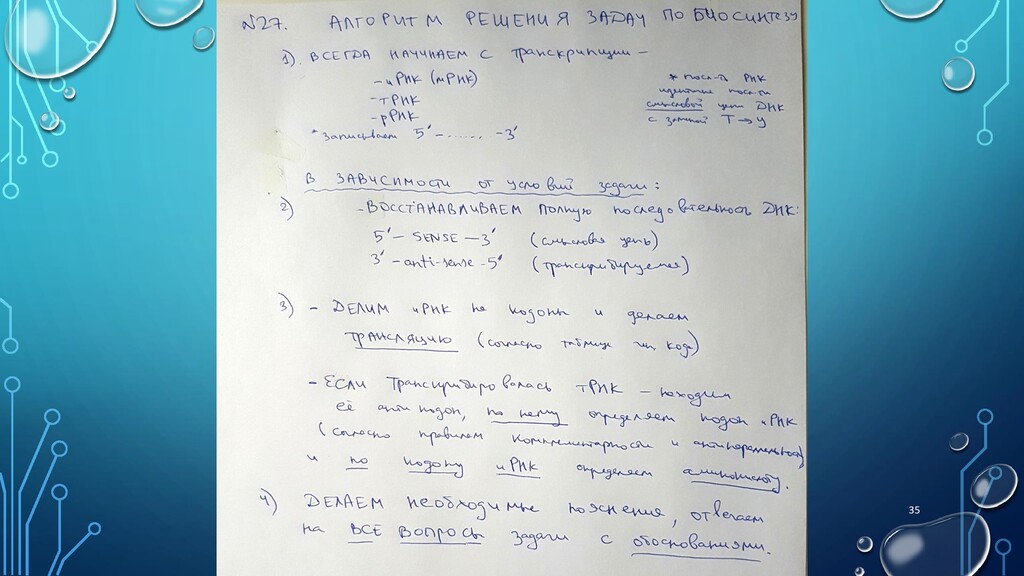 N27. АЛГОРИТМ РЕШЕНИЯ ЗАДАЧ ПО БИОСИНТЕЗУ
1). ВСЕГДА НАЧИНАЕМ С транскрипции –
- иРНК (мРНК)
- тРНК
- рРНК
* Записываем 5' – ....... – 3'
* посл-ть РНК
идентичне посл-ти
смысловой цепи ДНК
с заменой Т → У
В ЗАВИСИМОСТИ от условий задачи:
2) - ВОССТАНАВЛИВАЕМ полную последовательность ДНК:
5' – SENSE – 3' (смысловая цепь)
3' – anti-sense - 5' (транскрибируемая)
3) - ДЕЛИМ иРНК на кодоны и делаем
ТРАНСЛЯЦИЮ (согласно таблице ген. кода)
- ЕСЛИ Транскрибировалась тРНК – находим
её антикодон, по нему определяет кодон иРНК
(согласно правилам комплементарности и антипараллельности)
и по кодону иРНК определяем аминокислоту.
4) ДЕЛАЕМ необходимые пояснения, отвечаем
на ВСЕ ВОПРОСЫ задачи с обоснованиями.
35